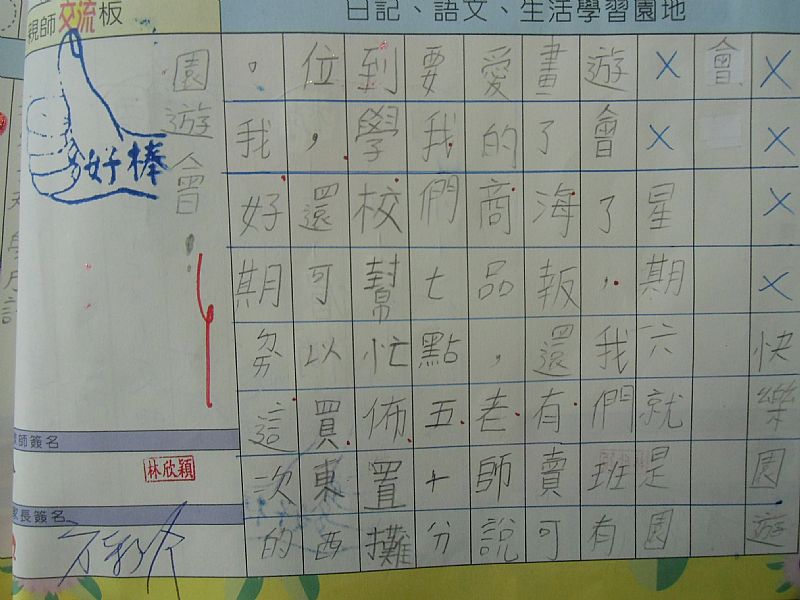 日記、語文、生活學習園地
親師交流板
××××快樂園遊
會
××星期六就是園
遊會了，我們班有
畫了海報還有賣可
愛的商品，老師說
要我們七點五十分
到學校幫忙佈置攤
位，還可以買東西
。我好期ㄉㄞ這次的
園遊會！
好棒
師簽名
林欣穎
家長簽名